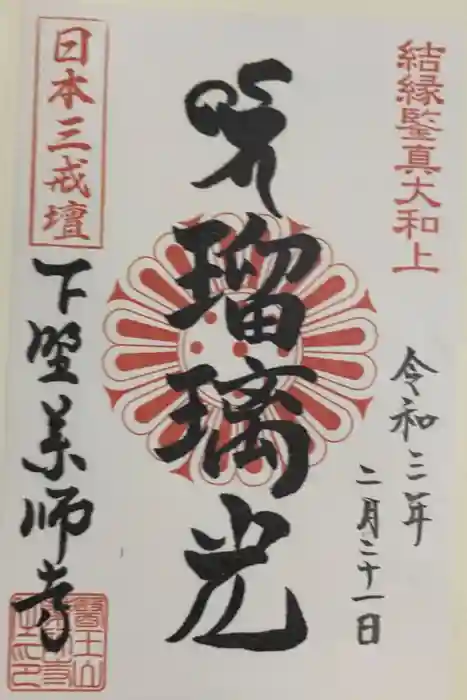 結縁鑒真大和上
令和三年
二月二十一日
瑠璃光
日本三戒壇
下野薬師寺